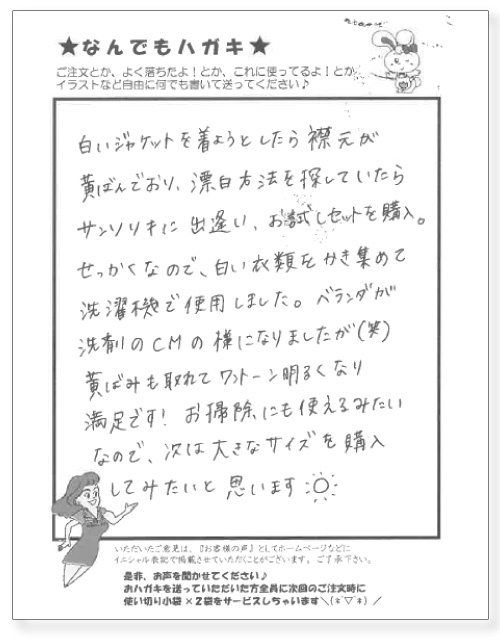 ★なんでもハガキ★
ご注文とか、よく落ちたよ！とか、これに使ってるよ！とか
イラストなど自由に何でも書いて送ってください♪
白いジャケットを着ようとしたら襟元が
黄ばんでおり、漂白方法を探していたら
サンソリキに出逢い、お試しセットを購入。
せっかくなので、白い衣類をかき集めて
洗濯機で使用しました。ベランダが
洗剤のCMの様になりましたが(笑)
黄ばみも取れてワントーン明るくなり
満足です！お掃除にも使えるみたい
なので、次は大きなサイズを購入
してみたいと思います
いただいたご意見は、『お客様の声』としてホームページなどに
イニシャル表記で掲載させていただくことがございます。ご了承下さい。
是非、お声を聞かせてください♪
おハガキを送っていただいた方全員に次回のご注文時に
使い切り小袋×2袋をサービスしちゃいます＼(*´▽`*)／